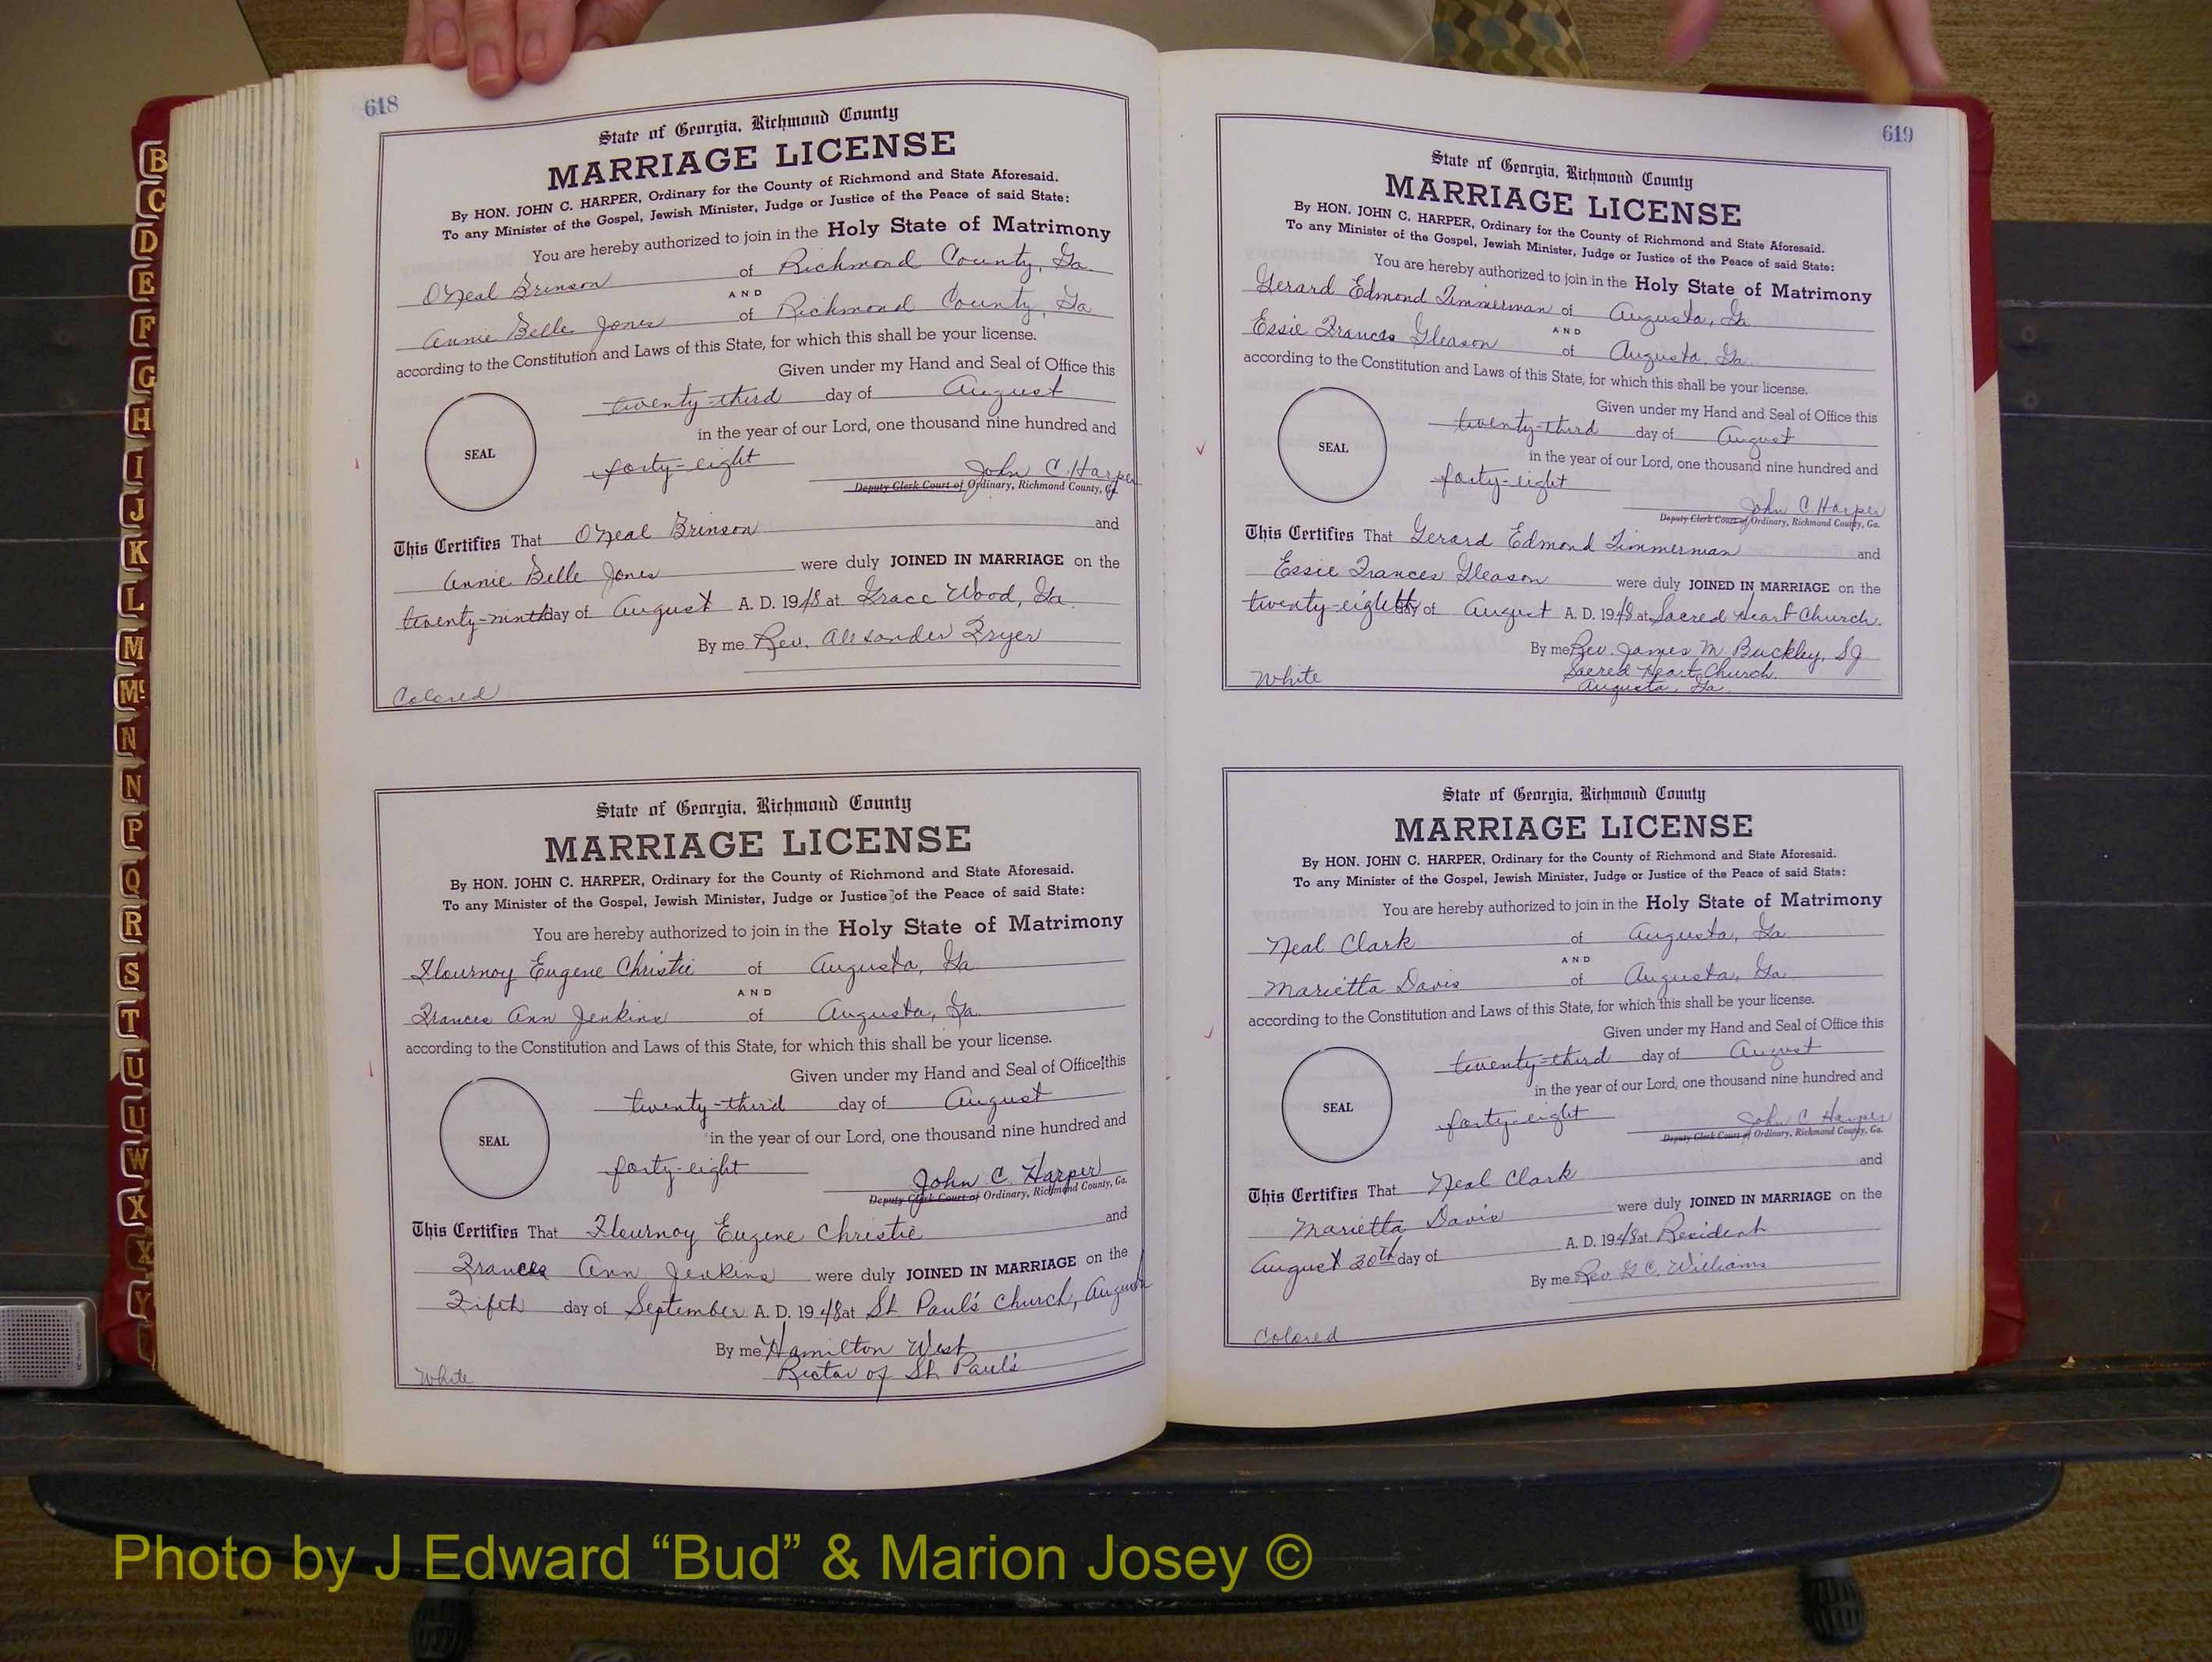 618
State of Georgia, Richmond County
MARRIAGE LICENSE
By HON. JOHN C. HARPER, Ordinary for the County of Richmond and State Aforesaid.
To any Minister of the Gospel, Jewish Minister, Judge or Justice of the Peace of said State:
You are hereby authorized to join in the Holy State of Matrimony
O'Neal Brinson of Richmond County, Ga.
AND
Annie Belle Jones of Richmond County, Ga.
according to the Constitution and Laws of this State, for which this shall be your license.
Given under my Hand and Seal of Office this
twenty-third day of August
in the year of our Lord, one thousand nine hundred and
SEAL
forty-eight John C. Harper
Deputy Clerk Court of Ordinary, Richmond County, Ga.
This Certifies That O'Neal Brinson and
Annie Belle Jones were duly JOINED IN MARRIAGE on the
twenty-ninth day of August A. D. 1948 at Grace Wood, Ga.
By me Rev. Alexsander Fryer
Colored
State of Georgia, Richmond County
MARRIAGE LICENSE
By HON. JOHN C. HARPER, Ordinary for the County of Richmond and State Aforesaid.
To any Minister of the Gospel, Jewish Minister, Judge or Justice of the Peace of said State:
You are hereby authorized to join in the Holy State of Matrimony
Flournoy Eugene Christie of Augusta, Ga.
AND
Frances Ann Jenkins of Augusta, Ga.
according to the Constitution and Laws of this State, for which this shall be your license.
Given under my Hand and Seal of Office this
twenty-third day of August
in the year of our Lord, one thousand nine hundred and
SEAL
forty-eight John C. Harper
Deputy Clerk Court of Ordinary, Richmond County, Ga.
This Certifies That Flournoy Eugene Christie and
Frances Ann Jenkins were duly JOINED IN MARRIAGE on the
Fifth day of September A. D. 1948 at St Paul's Church, Augusta
By me Hamilton West
Rector of St. Paul's
White
619
State of Georgia, Richmond County
MARRIAGE LICENSE
By HON. JOHN C. HARPER, Ordinary for the County of Richmond and State Aforesaid.
To any Minister of the Gospel, Jewish Minister, Judge or Justice of the Peace of said State:
You are hereby authorized to join in the Holy State of Matrimony
Gerard Edmond Timmerman of Augusta, Ga.
AND
Essie Frances Gleason of Augusta, Ga.
according to the Constitution and Laws of this State, for which this shall be your license.
Given under my Hand and Seal of Office this
twenty-third day of August
in the year of our Lord, one thousand nine hundred and
SEAL
forty-eight John C. Harper
Deputy Clerk Court of Ordinary, Richmond County, Ga.
This Certifies That Gerard Edmond Timmerman and
Essie Frances Gleason were duly JOINED IN MARRIAGE on the
twenty-eighth day of August A. D. 1948 at Sacred Heart Church.
By me Rev. James M Buckley, SJ
Sacred Heart Church.
Augusta, Ga.
White
State of Georgia, Richmond County
MARRIAGE LICENSE
By HON. JOHN C. HARPER, Ordinary for the County of Richmond and State Aforesaid.
To any Minister of the Gospel, Jewish Minister, Judge or Justice of the Peace of said State:
You are hereby authorized to join in the Holy State of Matrimony
Neal Clark of Augusta, Ga.
AND
Marietta Davis of Augusta, Ga.
according to the Constitution and Laws of this State, for which this shall be your license.
Given under my Hand and Seal of Office this
twenty-third day of August
in the year of our Lord, one thousand nine hundred and
SEAL
forty-eight John C. Harper
Deputy Clerk Court of Ordinary, Richmond County, Ga.
This Certifies That Neal Clark and
Marietta Davis were duly JOINED IN MARRIAGE on the
August 30th day of A. D. 1948 at Resident
By me Rev. G. C. Williams
Colored
B
C
D
E
F
G
H
I
J
K
L
M
Mc
N
N
P
Q
R
S
T
U
U
W
X
X
Y
Photo by J Edward “Bud” & Marion Josey ©